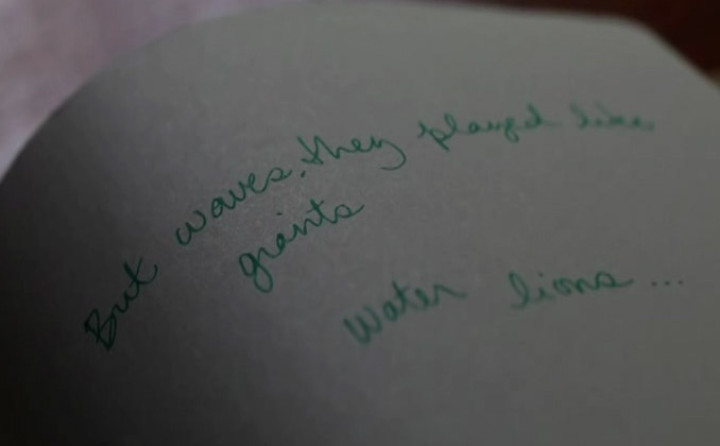 But waves, they played like
giants
water lions...